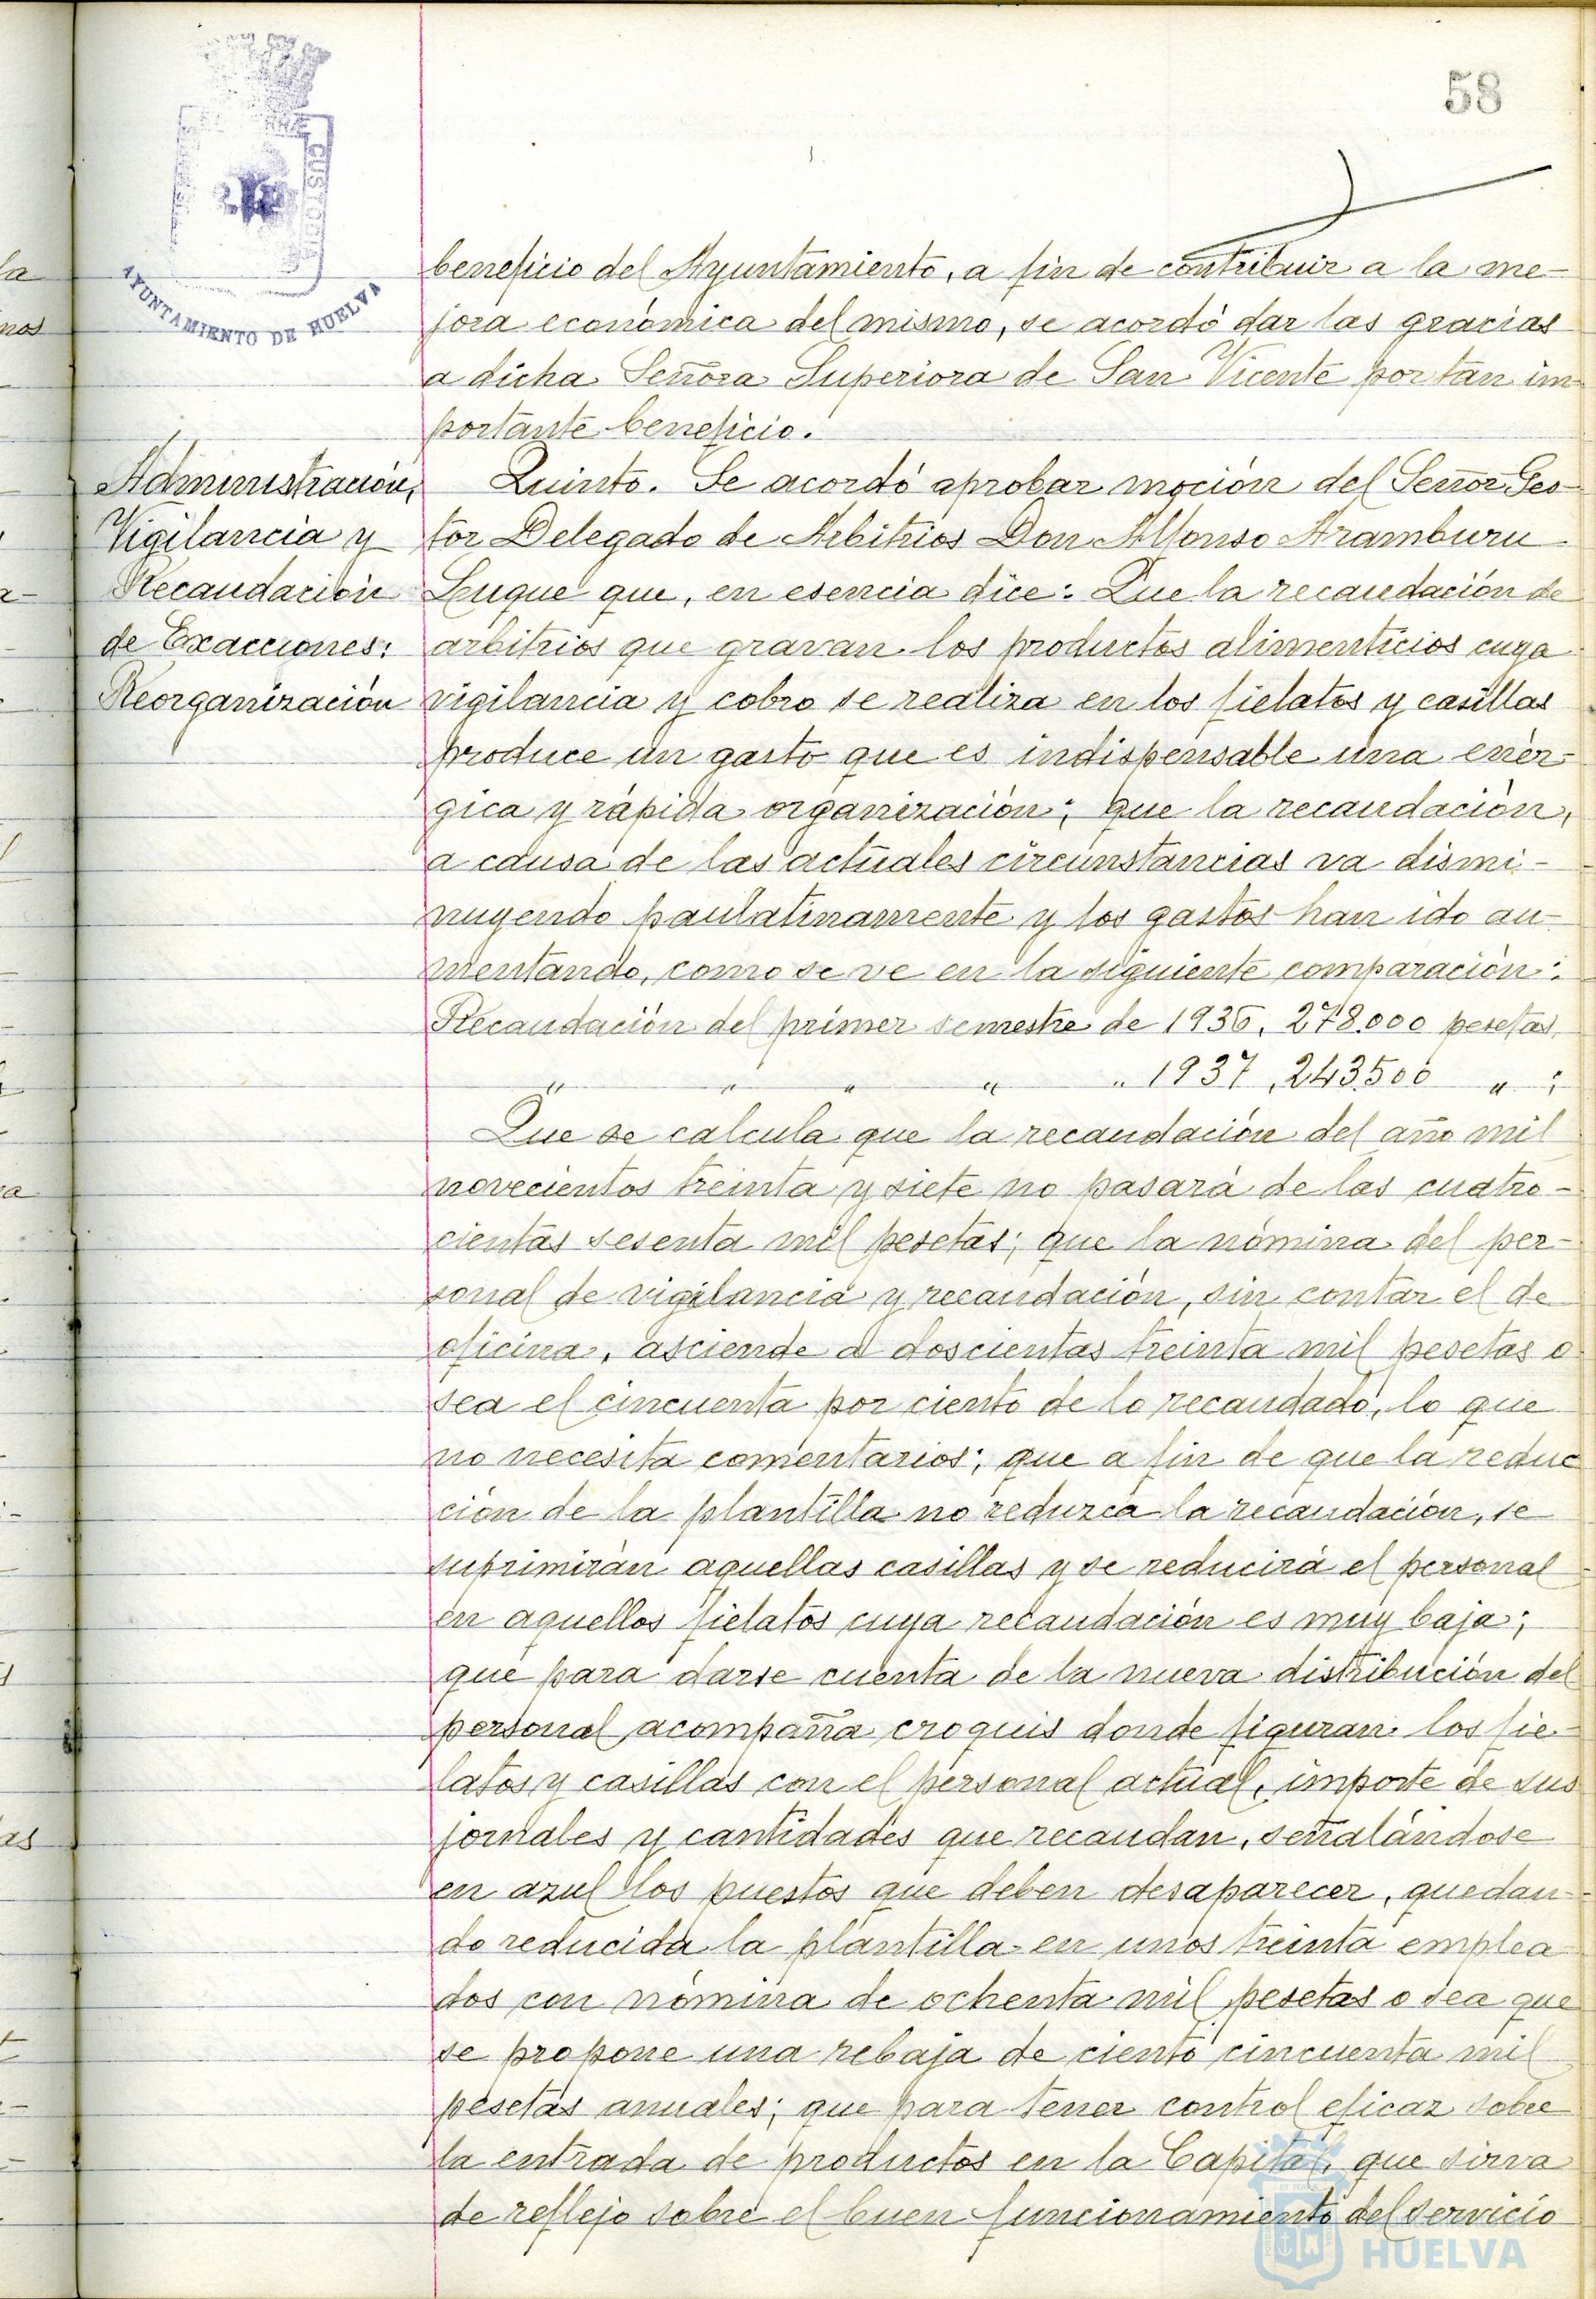 58
CUSTODIA
AYUNTAMIENTO DE HUELVA
beneficio del Ayuntamiento, a fin de contribuir a la me-
jora económica del mismo, se acordó dar las gracias
a dicha Señora Superiora de San Vicente por tan im-
portante beneficio.
Administración,
Vigilancia y
Recaudación
de Exacciones:
Reorganización
Quinto. Se acordó aprobar moción del Señor Ges-
tor Delegado de Arbitrios Don Alfonso Aramburu
Luque que, en esencia dice: Que la recaudación de
arbitrios que gravan los productos alimenticios cuya
vigilancia y cobro se realiza en los fielatos y casillas
produce un gasto que es indispensable una enér-
gica y rápida organización; que la recaudación,
a causa de las actuales circunstancias va dismi-
nuyendo paulatinamente y los gastos han ido au-
mentando, como se ve en la siguiente comparación:
Recaudación del primer semestre de 1936, 278.000 pesetas,
" " " " " 1937, 243.500 " ;
Que se calcula que la recaudación del año mil
novecientos treinta y siete no pasará de las cuatro-
cientas sesenta mil pesetas; que la nómina del per-
sonal de vigilancia y recaudación, sin contar el de
oficina, asciende a doscientas treinta mil pesetas o
sea el cincuenta por ciento de lo recaudado, lo que
no necesita comentarios; que a fin de que la reduc
ción de la plantilla no reduzca la recaudación, se
suprimirán aquellas casillas y se reducirá el personal
en aquellos fielatos cuya recaudación es muy baja;
que para darse cuenta de la nueva distribución del
personal acompaña croquis donde figuran los fie-
latos y casillas con el personal actual, importe de sus
jornales y cantidades que recaudan, señalándose
en azul los puestos que deben desaparecer, quedan-
do reducida la plantilla en unos treinta emplea
dos con nómina de ochenta mil pesetas o sea que
se propone una rebaja de ciento cincuenta mil
pesetas anuales; que para tener control eficaz sobre
la entrada de productos en la Capital, que sirva
de reflejo sobre el buen funcionamiento del servicio
HUELVA